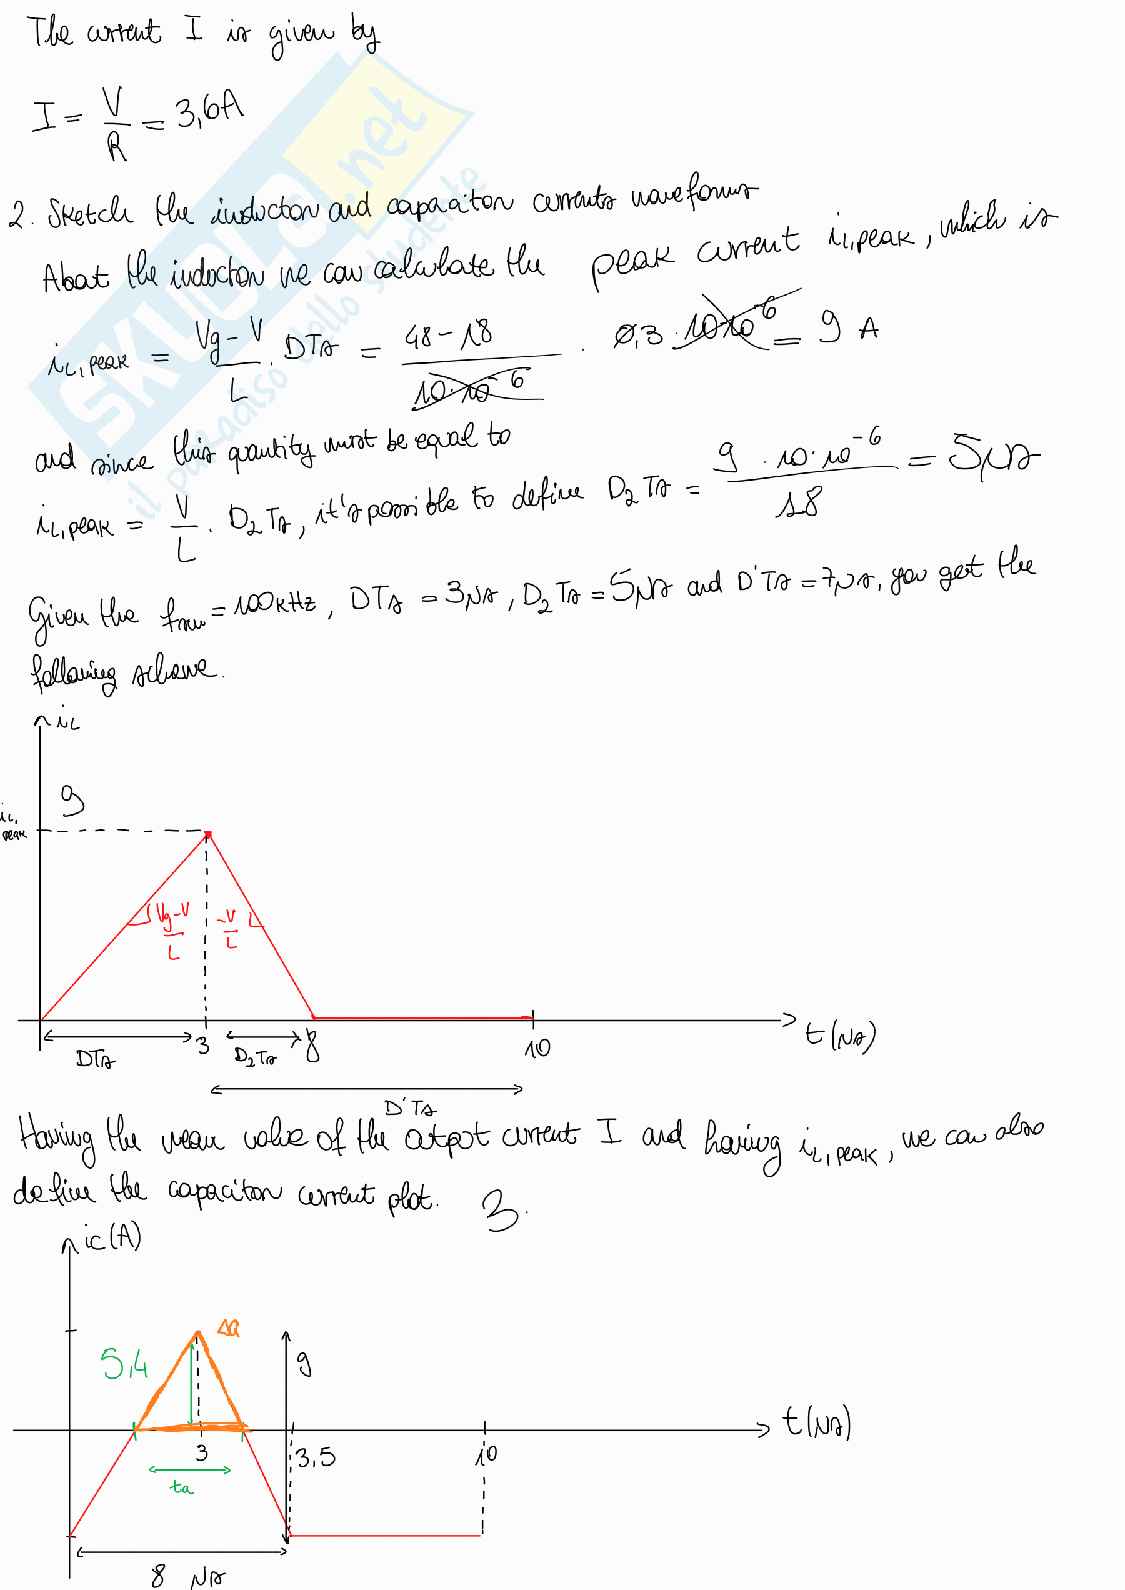 The current I is given by
I = V/R = 3,6A
2. Sketch the inductor and capacitor currents waveforms
About the inductor we can calculate the peak current iL,peak, which is
iL,peak = Vg-V/L · DTs = 48-18/10·10^-6 · 0,3 · 10·10^-6 = 9 A
and since this quantity must be equal to
iL,peak = V/L · D2Ts, it's possible to define D2Ts = 9 · 10·10^-6/18 = 5μs
Given the fsw = 100kHz, DTs = 3μs, D2Ts = 5μs and D'Ts = 7μs, you get the
following scheme.
iL
9
iL,peak
Vg-V/L
-V/L
DTs
3
D2Ts
8
10
t(μs)
D'Ts
Having the mean value of the output current I and having iL,peak, we can also
define the capacitor current plot. 3.
ic(A)
Δq
5,4
9
t(μs)
3
3,5
10
ta
8 μs
SKUOLA.net
il paradiso dello studente